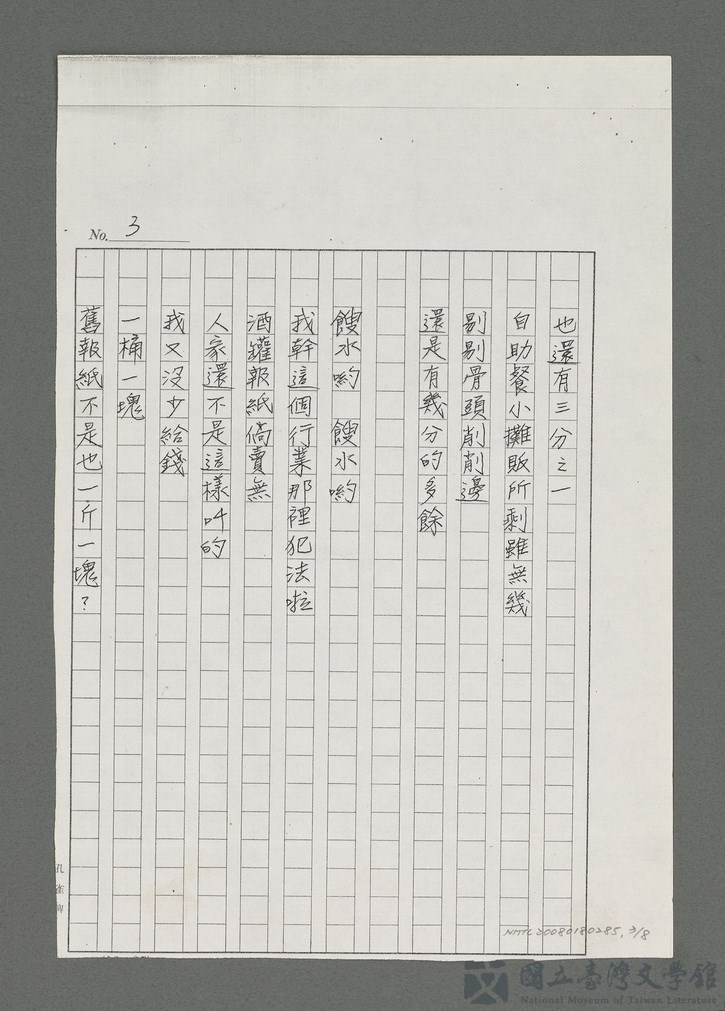 No. 3
也還有三分之一
自助餐小攤販所剩雖無幾
剔剔骨頭削削邊
還是有幾分的多餘
餿水喲 餿水喲
我幹這個行業那裡犯法啦
酒罐報紙倘賣無
人家還不是這樣叫的
我又沒少給錢
一桶一塊
舊報紙不是也一斤一塊？
孔雀牌
NMTL20080180285, 3/8
國立臺灣文學館
National Museum of Taiwan Literature